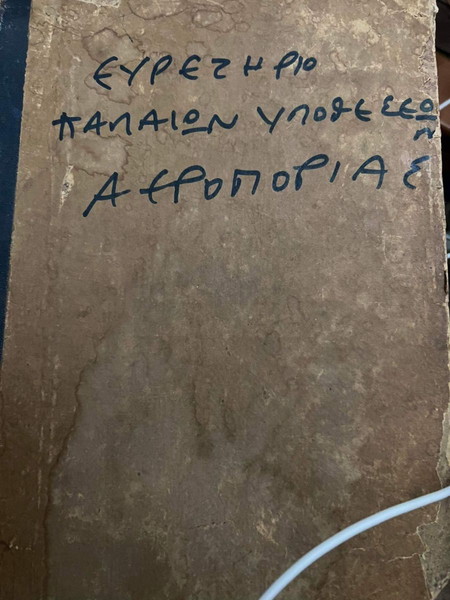 ΕΥΡΕΤΗΡΙΟ
ΠΑΛΑΙΩΝ ΥΠΟΘΕΣΕΩΝ
ΑΕΡΟΠΟΡΙΑΣ